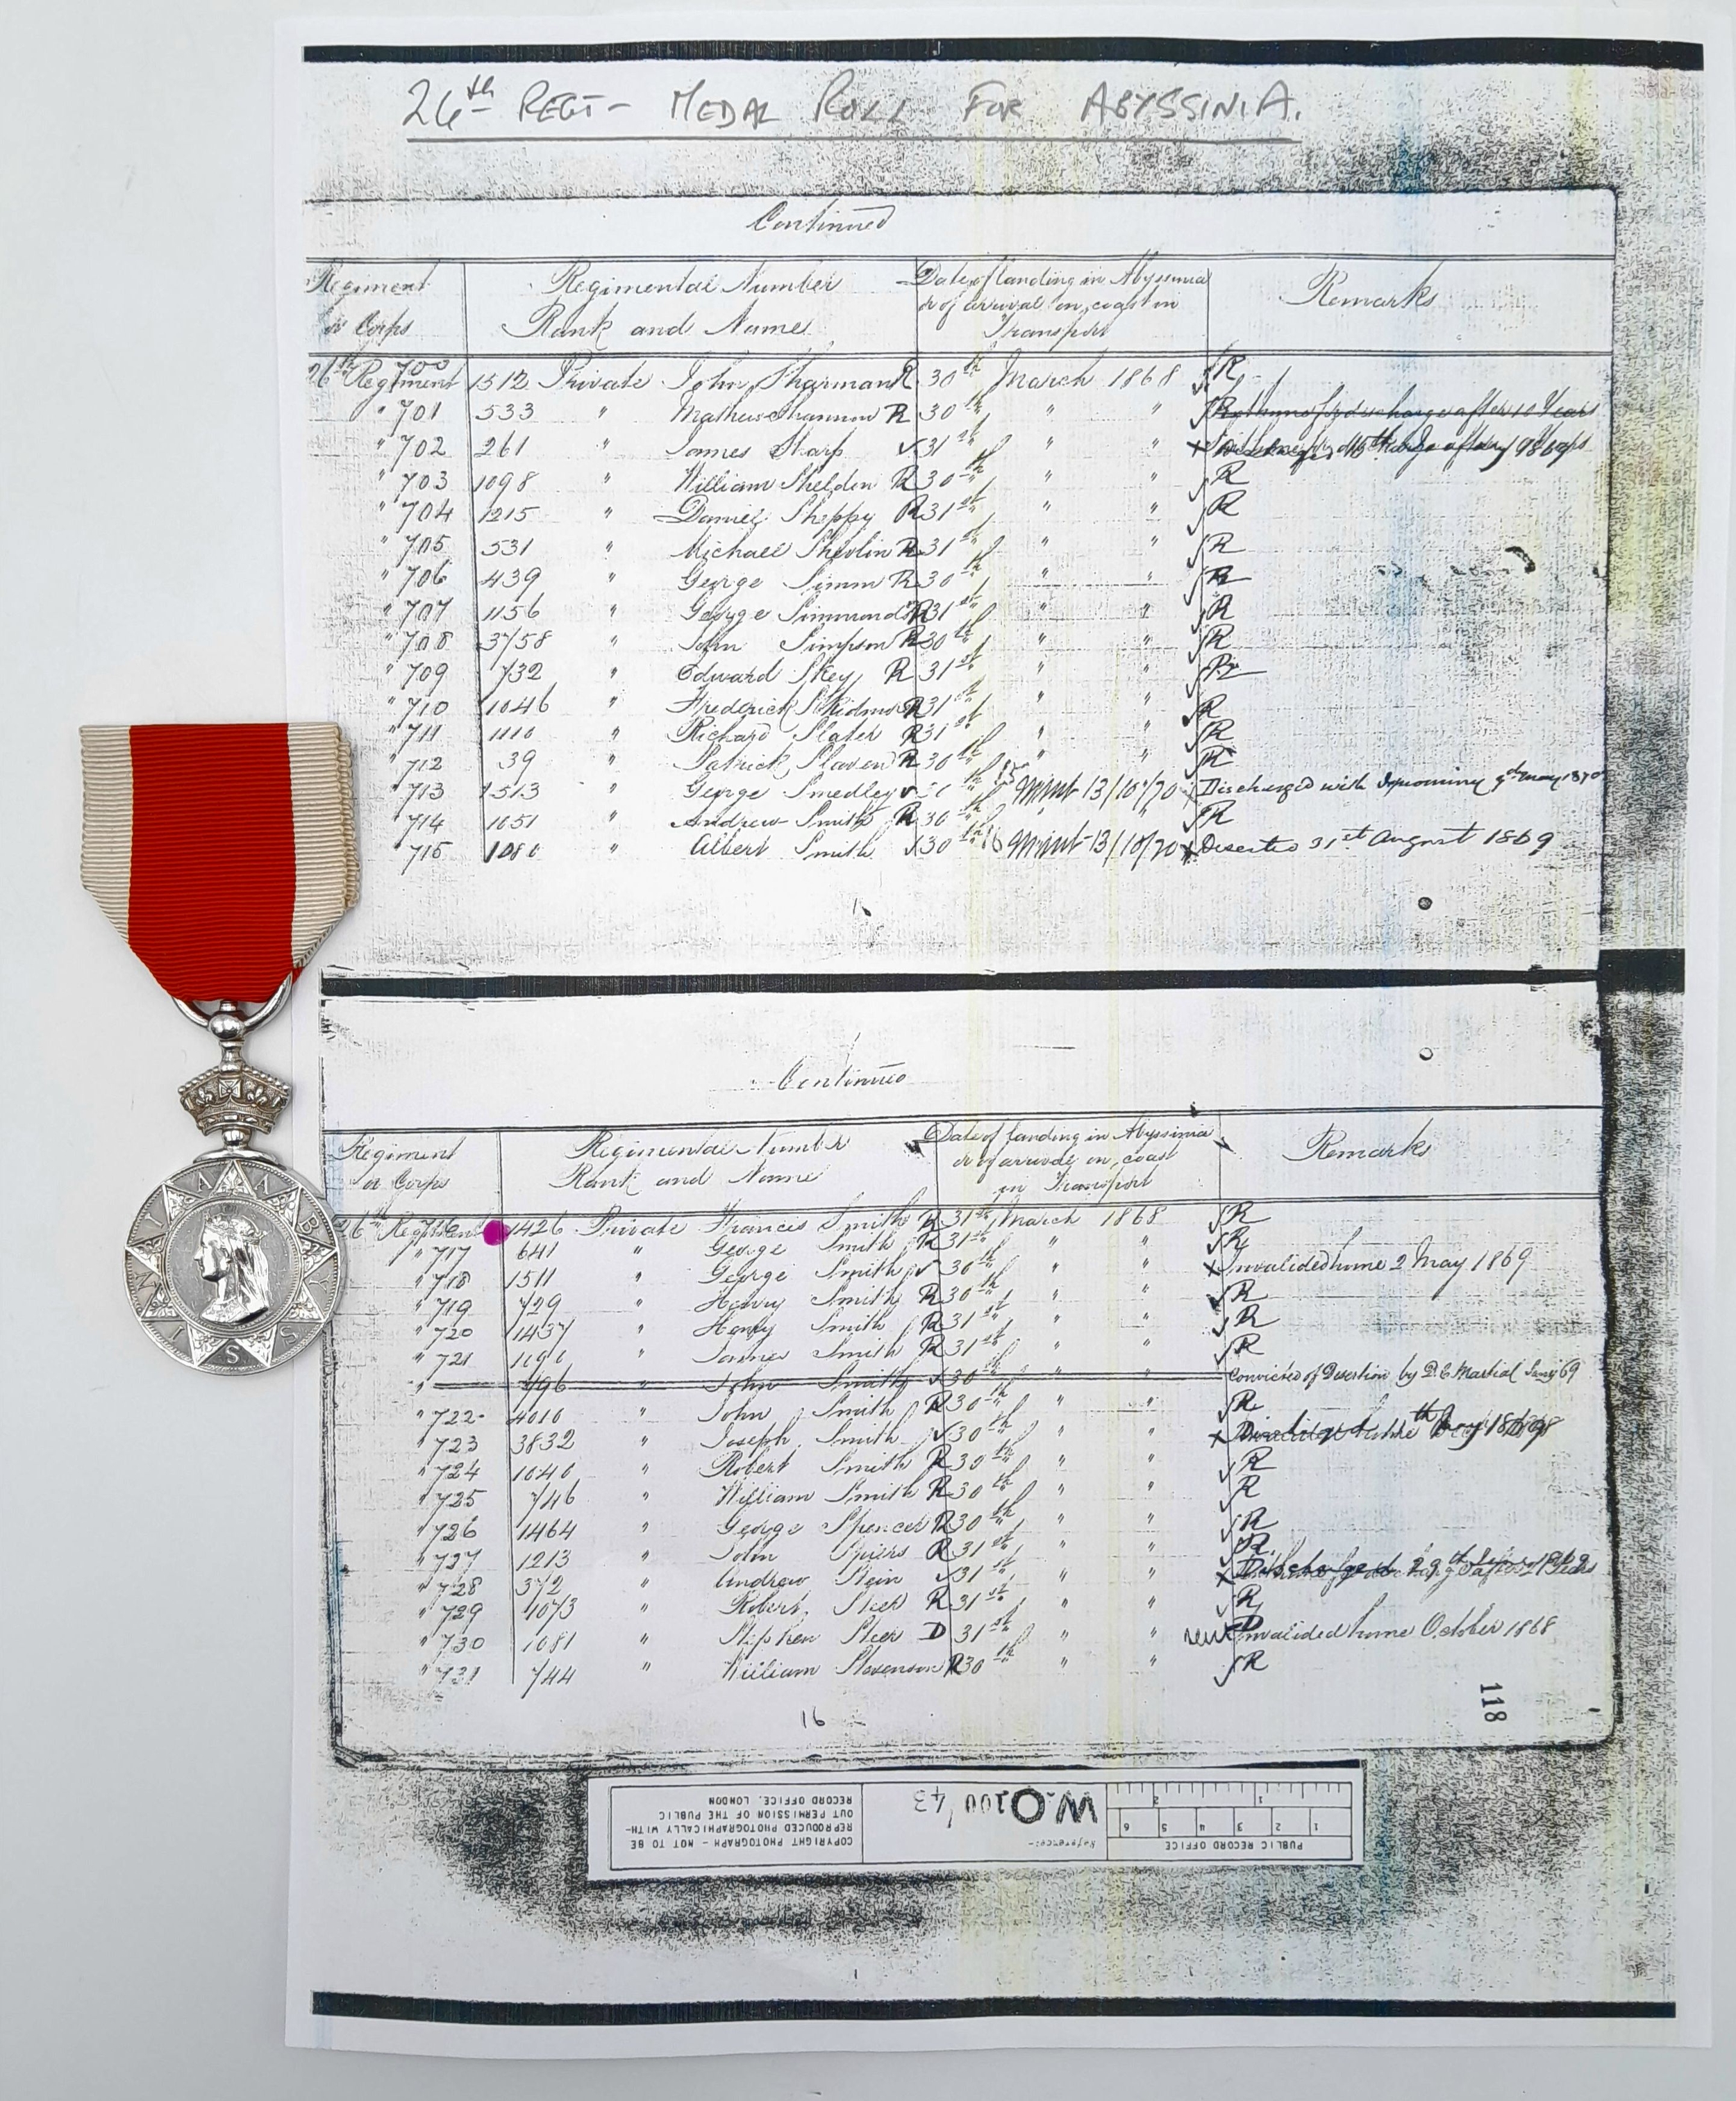 26th REGT - MEDAL ROLL FOR ABYSSINIA.
Continued
Regiment or Corps Regimental Number Rank and Name Date of landing in Abyssinia or of arrival on coast in Transport Remarks
26th Regiment 700 1512 Private John Sharman R 30th March 1868 R
" 701 533 " Shannon R 30th " "
" 702 261 " James Sharp 31st " " x
" 703 1098 " William Sheldin R 30th " " R
" 704 1215 " Daniel Sheppy R 31st " " R
" 705 531 " Michael Shevlin R 31st " " R
" 706 439 " George Simm R 30th " " R
" 707 1156 " George Simmonds R 31st " " R
" 708 3758 " John Simpson R 30th " " R
" 709 732 " Edward Skey R 31st " " R
" 710 1046 " Frederick R 31st " " R
" 711 1110 " Richard Slater R 31st " " R
" 712 39 " Patrick Slaven R 30th " " R
" 713 1513 " George Smedley 15 Mint 13/10/70 Discharged with Ignominy 9th May 1870
" 714 1051 " Andrew Smith R 30th " " R
" 715 " Albert Smith 30th 16 Mint 13/10/70 x Deserted 31st August 1869
Continued
Regiment or Corps Regimental Number Rank and Name Date of landing in Abyssinia or of arrival on coast in Transport Remarks
26th Regiment 1426 Private Francis Smith R 31st March 1868 R
" 717 641 " George Smith R 31st " " R
" 718 1511 " George Smith 30th " " x Invalided home 2 May 1869
" 719 729 " Henry Smith R 30th " " R
" 720 1437 " Henry Smith R 31st " " R
" 721 " James Smith R 31st " " R
" 496 " John Smith 30th " " Convicted of Desertion by D.C. Martial Jany 69
" 722 4010 " John Smith R 30th " " R
" 723 3832 " Joseph Smith 30th " " x
" 724 1040 " Robert Smith R 30th " " R
" 725 746 " William Smith R 30th " " R
" 726 1464 " George Spencer R 30th " " R
" 727 1213 " John Spiers R 31st " " R
" 728 372 " Andrew Stein 31st " " x
" 729 1073 " Robert Steer R 31st " " R
" 730 1081 " Stephen Steer D 31st " " Invalided home October 1868
" 731 744 " William Stevenson R 30th " " R
16
118
PUBLIC RECORD OFFICE
1 2 3 4 5 6
1 2
Reference:-
W.O 100/43
COPYRIGHT PHOTOGRAPH - NOT TO BE
REPRODUCED PHOTOGRAPHICALLY WITH-
OUT PERMISSION OF THE PUBLIC
RECORD OFFICE, LONDON
A B Y S S I N I A